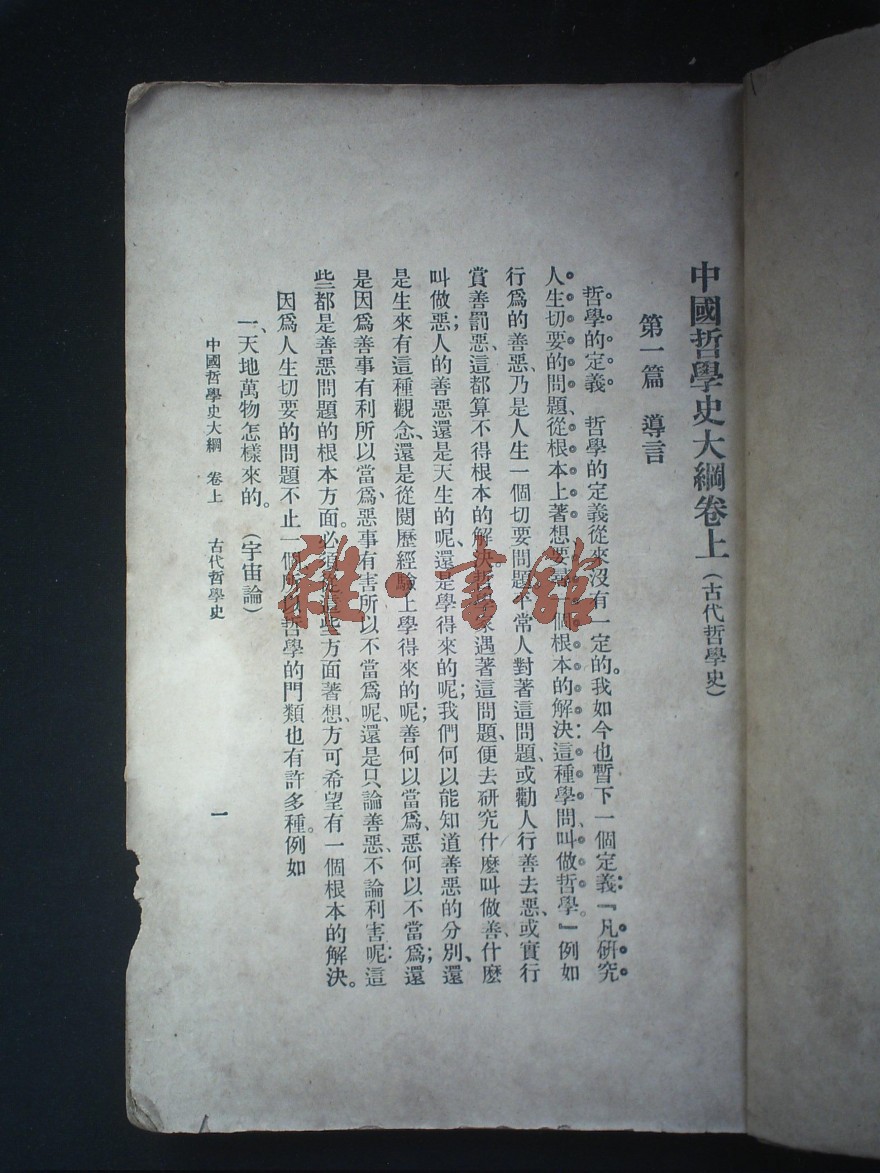 中國哲學史大綱卷上（古代哲學史）
第一篇　導言
哲學的定義　哲學的定義從來沒有一定的。我如今也暫下一個定義：『凡研究
人生切要的問題、從根本上著想、要尋一個根本的解決：這種學問、叫做哲學。』例如
行爲的善惡、乃是人生一個切要問題。平常人對著這問題、或勸人行善去惡、或實行
賞善罰惡、這都算不得根本的解決。哲學家遇著這問題、便去研究什麼叫做善、什麼
叫做惡；人的善惡還是天生的呢、還是學得來的呢；我們何以能知道善惡的分別、還
是生來有這種觀念、還是從閱歷經驗上學得來的呢；善何以當爲、惡何以不當爲；還
是因爲善事有利所以當爲、惡事有害所以不當爲呢、還是只論善惡、不論利害呢：這
些都是善惡問題的根本方面。必須從這些方面著想、方可希望有一個根本的解決。
因爲人生切要的問題不止一個、所以哲學的門類也有許多種。例如
一、天地萬物怎樣來的。（宇宙論）
中國哲學史大綱　卷上　古代哲學史
一
雜·書館